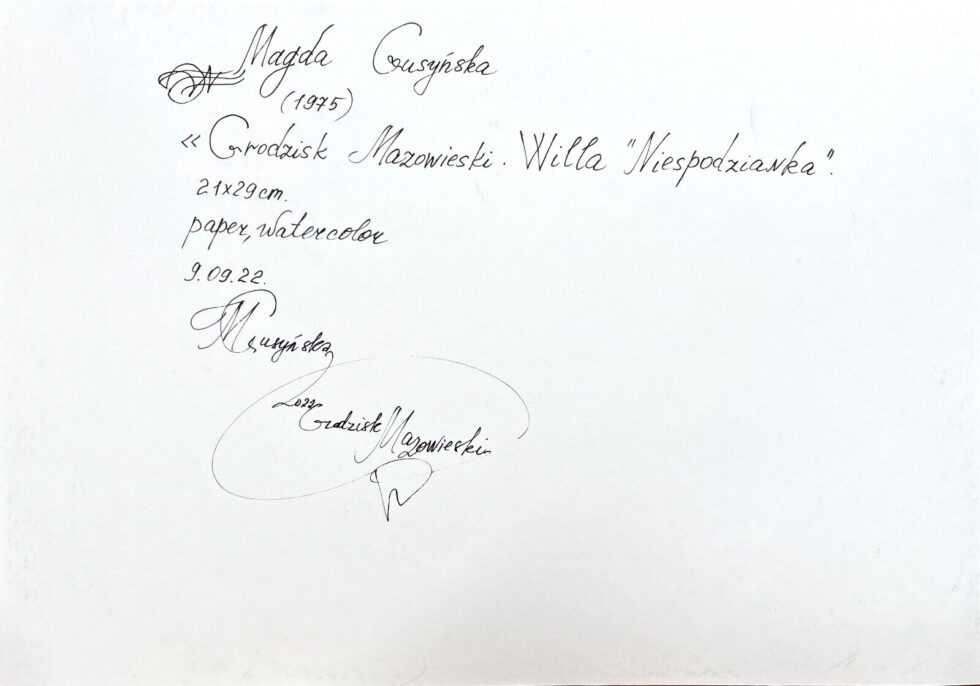 Magda Gusyńska
(1975)
« Grodzisk Mazowieski. Willa "Niespodzianka".
21x29cm.
paper, watercolor
9.09.22.
MGusyńska
2022
Grodzisk Mazowieski